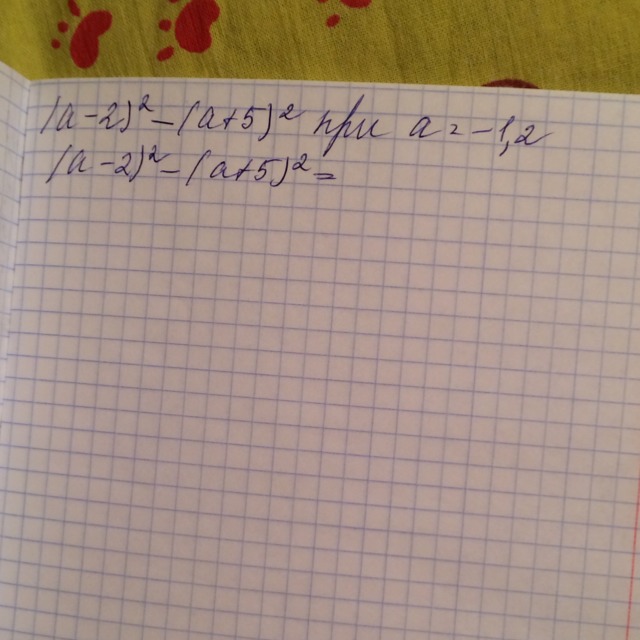 (a-2)²-(a+5)² при a=-1,2
(a-2)²-(a+5)²=